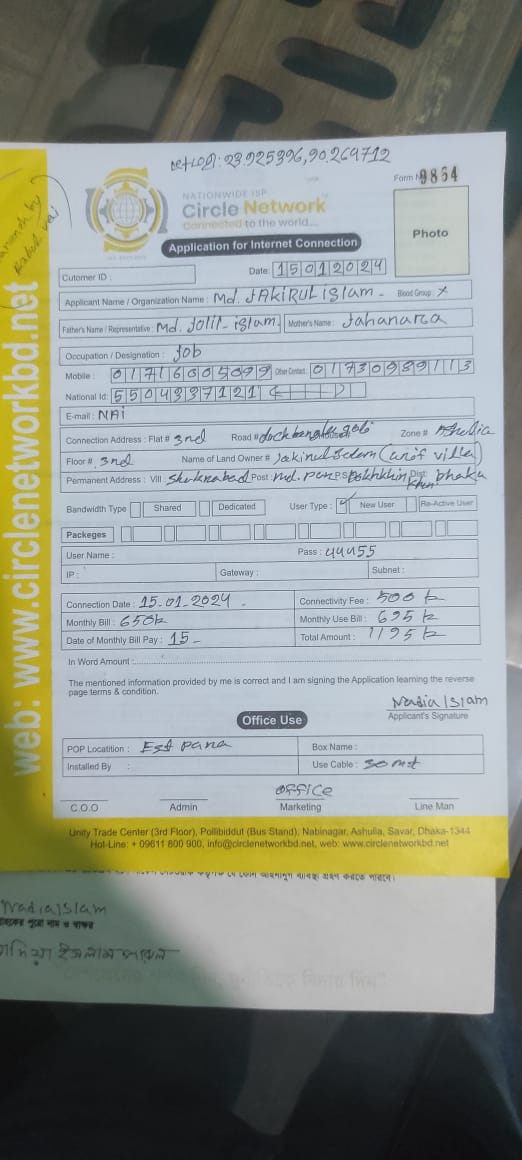 23.925396, 90.264712
Form N 9864
NATIONWIDE ISP
Circle Network
Connected to the world...
Photo
Application for Internet Connection
Date: 15012024
Cutomer ID :
Applicant Name / Organization Name : Md. JAKIRUL islam - Blood Group : X
Father's Name / Representative : Md. Jolil islam Mother's Name : Jahanara
Occupation / Designation : Job
Mobile : Other Contact :
National Id: 5504337121
E-mail : NAi
Connection Address : Flat # 3nd Road # Zone # Ashulia
Floor # 3nd Name of Land Owner #
Permanent Address : Vill : Post : Md. P.S Dist: Dhaka
Bandwidth Type Shared Dedicated User Type : ✓ New User Re-Active User
Packeges
User Name : Pass : 44455
IP : Gateway : Subnet :
Connection Date : 15.01.2024 . Connectivity Fee : 500 tk
Monthly Bill : 650tk Monthly Use Bill : 695 tk
Date of Monthly Bill Pay : 15 - Total Amount : 1195 tk
In Word Amount :
The mentioned information provided by me is correct and I am signing the Application learning the reverse
page terms & condition.
Nadia Islam
Applicant's Signature
Office Use
POP Locatition : Est pana Box Name :
Installed By : Use Cable : 30 mt
office
C.O.O Admin Marketing Line Man
Unity Trade Center (3rd Floor), Pollibiddut (Bus Stand), Nabinagar, Ashulia, Savar, Dhaka-1344
Hot-Line: + 09611 800 900, info@circlenetworkbd.net, web: www.circlenetworkbd.net
web: www.circlenetworkbd.net
Nadia Islam
গ্রাহকের পুরো নাম ও স্বাক্ষর